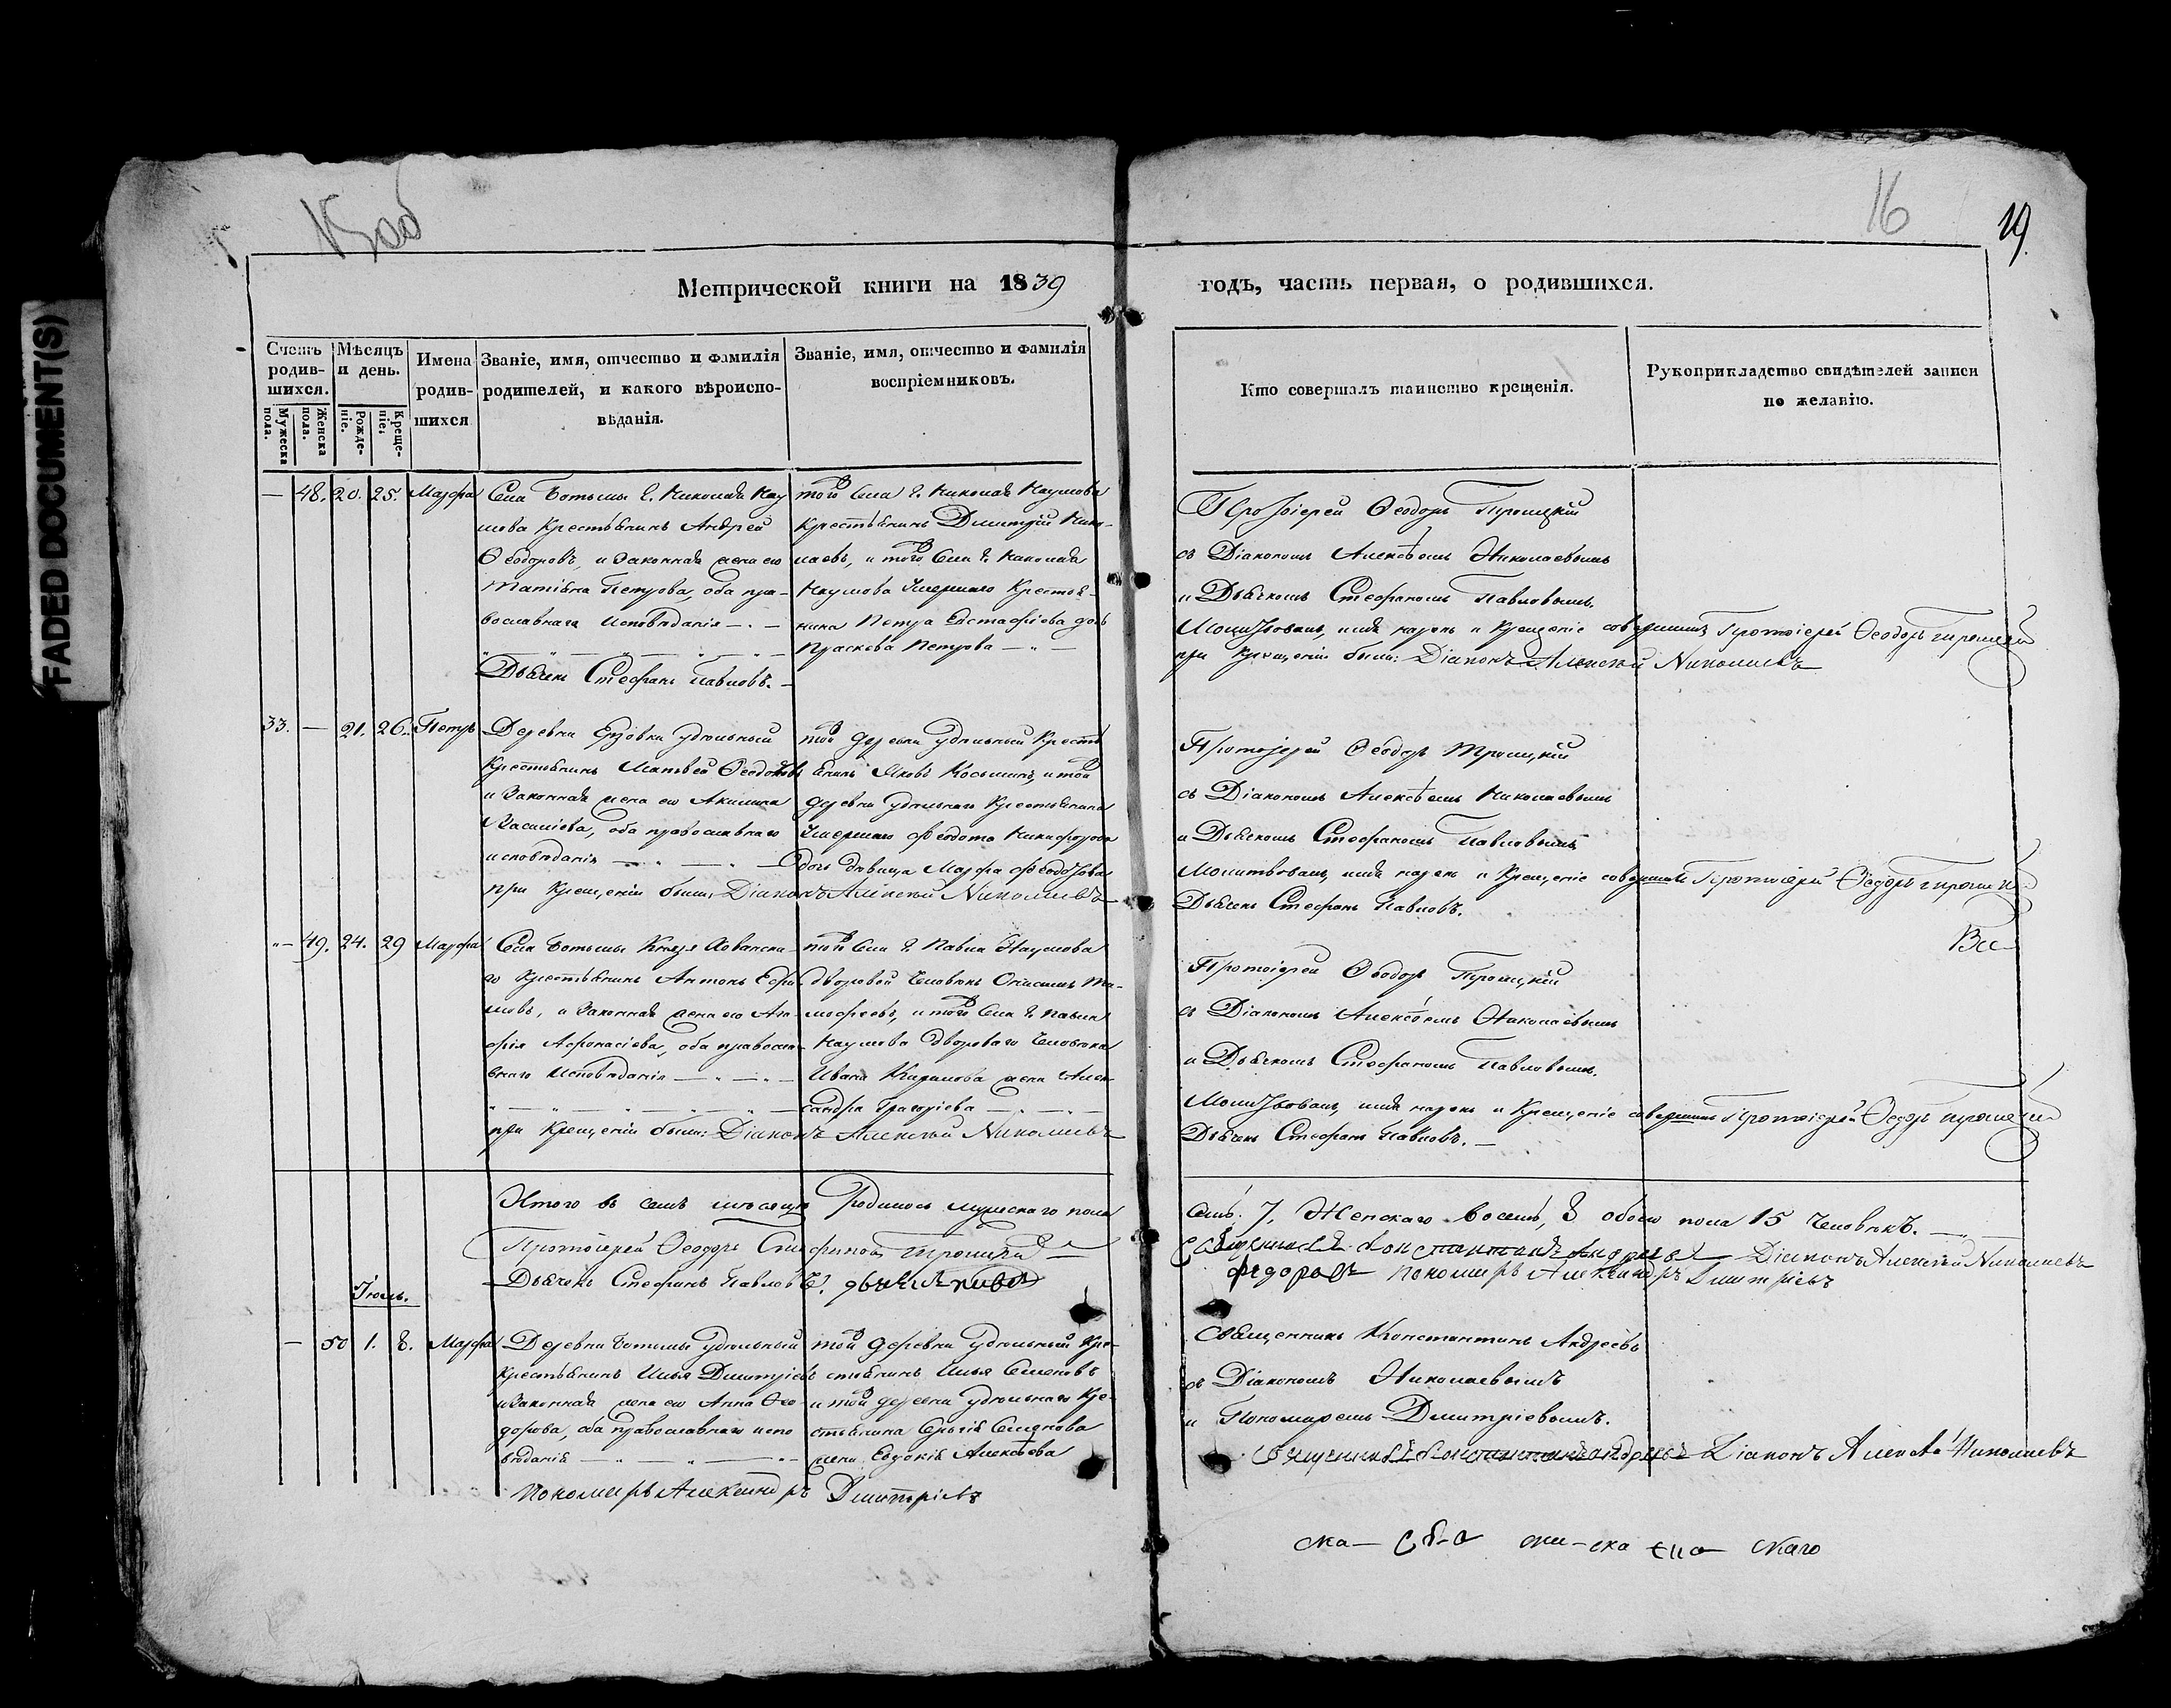 FADED DOCUMENT(S)
16
19
Метрической книги на 1839 годъ, часть первая, о родившихся.
Счетъ родившихся.
Мужеска пола.
Женска пола.
Мѣсяцъ и день.
Рожденіе.
Крещеніе.
Имена родившихся
Званіе, имя, отчество и фамилія родителей, и какого вѣроисповѣданія.
Званіе, имя, отчество и фамилія воспріемниковъ.
Кто совершалъ таинство крещенія.
Рукоприкладство свидѣтелей записи по желанію.
— 48. 20. 25. Марфа
Села Ботьмы Г. Николая Нау
мова Крестьянинъ Андрей
Ѳеодоровъ, и Законная жена его
Татіана Петрова, оба пра-
вославнаго исповѣданія —
Дьячекъ Стефанъ Павловъ. —
того Села Г. Николая Наумова
крестьянинъ Димитрій Нико-
лаевъ, и того Села Г. Николая
Наумова Умершаго Крестья-
нина Петра Евстафіева дочь
Праскева Петрова —
Протоіерей Ѳеодоръ Троицкій
съ Діакономъ Алексѣемъ Николаевымъ
и Дьячкомъ Стефаномъ Павловымъ.
Молитвовалъ, имя нарекъ и Крещеніе совершилъ Протоіерей Ѳеодоръ Троицкій
при Крещеніи были: Діаконъ Алексѣй Николаевъ
33. — 21. 26. Петръ
Деревни Ерзовки удѣльный
Крестьянинъ Матвей
и Законная жена его Акилина
Василіева, оба православнаго
исповѣданія —
при Крещеніи были: Діаконъ Алексѣй Николаевъ
той деревни удѣльный Кресть
янинъ Яковъ Косьминъ, и той
деревни удѣльнаго Крестьянина
Умершаго Феодота Никифорова
дочь дѣвица Марфа
Протоіерей Ѳеодоръ Троицкій
съ Діакономъ Алексѣемъ Николаевымъ
и Дьячкомъ Стефаномъ Павловымъ
Молитвовалъ, имя нарекъ и Крещеніе совершилъ Протоіерей Ѳеодоръ Троицкій
Дьячекъ Стефанъ Павловъ.
— 49. 24. 29 Марфа
Села Ботьмы Князя Хованска-
го Крестьянинъ Антонъ Ефи
мовъ, и Законная жена его Ага-
фія Афонасіева, оба правосла-
внаго исповѣданія —
при Крещеніи были: Діаконъ Алексѣй Николаевъ
того Села Г. Павла Наумова
дворовой Человѣкъ Онисимъ Ти-
мофеевъ, и того Села Г. Павла
Наумова двороваго Человѣка
Ивана Кирилова жена Алек-
сандра Григоріева —
Протоіерей Ѳеодоръ Троицкій
съ Діакономъ Алексѣемъ Николаевымъ
и Дьячкомъ Стефаномъ Павловымъ.
Молитвовалъ, имя нарекъ и Крещеніе совершилъ Протоіерей Ѳеодоръ Троицкій
Дьячекъ Стефанъ Павловъ. —
Итого въ семъ мѣсяцѣ Родилось мужескаго пола
семь. 7, Женскаго восемь, 8 обоего пола 15 Человѣкъ. —
Протоіерей Ѳеодоръ Троицкій
Священникъ Константинъ Андреевъ Діаконъ Алексѣй Николаевъ
Дьячекъ Стефанъ Павловъ.
Федоровъ Пономарь Александръ Дмитріевъ
Іюль.
— 50 1. 8. Марфа
Деревни Ботьмы удѣльный
Крестьянинъ Илья Димитріевъ
и Законная жена его Анна Ѳео-
дорова, оба Православнаго испо
вѣданія —
Пономарь Александръ Дмитріевъ
той деревни удѣльный Кре-
стьянинъ Илья Семеновъ
и той деревни удѣльнаго Кре-
стьянина Сергія Семенова
жена Евдокія Алексѣева
Священникъ Константинъ Андреевъ
съ Діакономъ Николаевымъ
и Пономаремъ Димитріевымъ.
Священникъ Константинъ Андреевъ Діаконъ Алексѣй Николаевъ